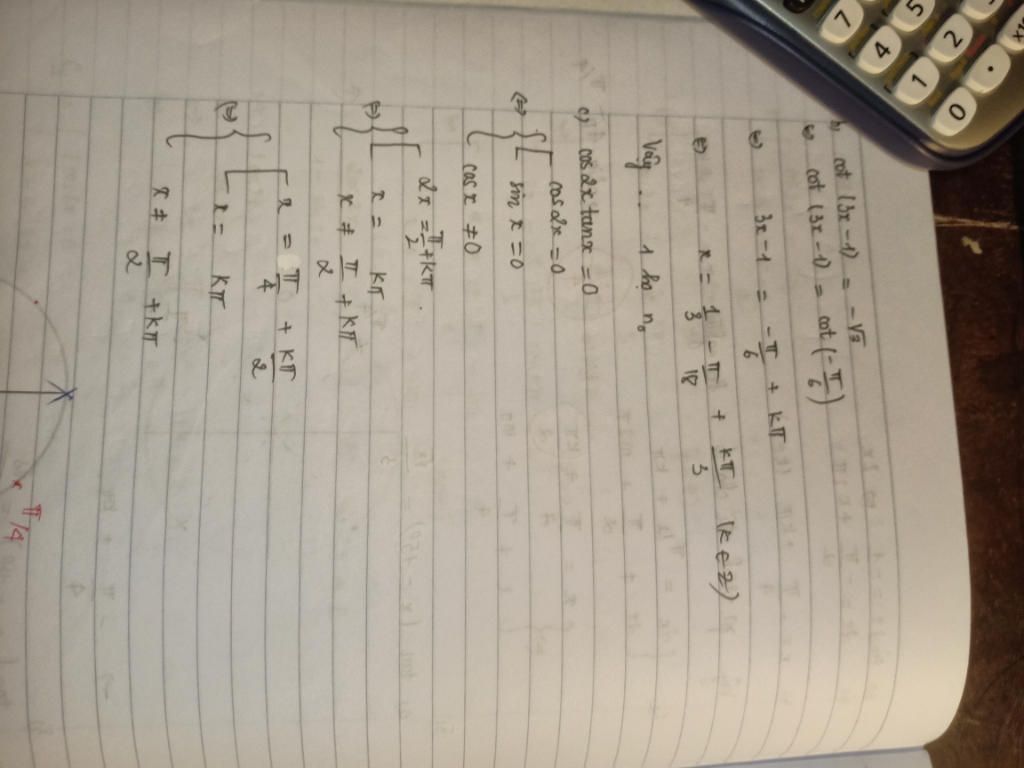 b) cot (3x-1) = -√3
⇔ cot (3x-1) = cot (-π/6)
⇔ 3x-1 = -π/6 + kπ
⇔ x = 1/3 - π/18 + kπ/3 (k ∈ Z)
Vậy ... 1 họ n₀
c) cos2x tanx = 0
⇔ { [ cos2x = 0
sin x = 0
cosx ≠ 0
⇔ { [ 2x = π/2 + kπ.
x = kπ
x ≠ π/2 + kπ
⇔ { [ x = π/4 + kπ/2
x = kπ
x ≠ π/2 + kπ
π/4
7
4
5
1
2
0
.